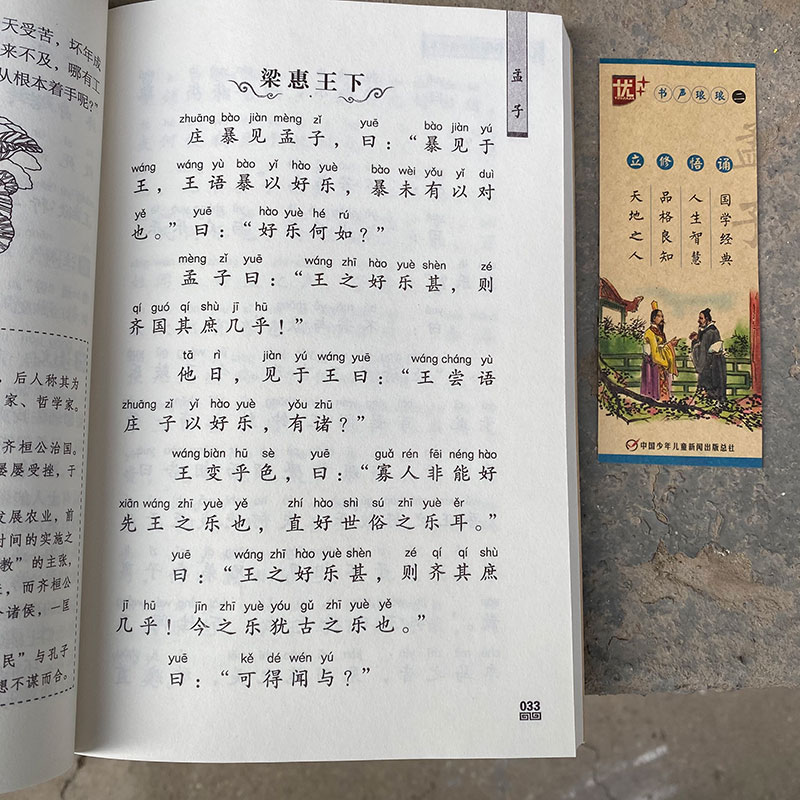 天受苦，坏年成
来不及，哪有工
从根本着手呢？”
，后人称其为
家、哲学家。
齐桓公治国。
屡屡受挫，于
发展农业，前
时间的实施之
教”的主张，
，而齐桓公
诸侯，一匡
民”与孔子
想不谋而合。
孟子
梁惠王下
zhuāng bào jiàn mèng zǐ yuē bào jiàn yú
庄暴见孟子，曰：“暴见于
wáng wáng yù bào yǐ hào yuè bào wèi yǒu yǐ duì
王，王语暴以好乐，暴未有以对
yě yuē hào yuè hé rú
也。”曰：“好乐何如？”
mèng zǐ yuē wáng zhī hào yuè shèn zé
孟子曰：“王之好乐甚，则
qí guó qí shù jī hū
齐国其庶几乎！”
tā rì jiàn yú wáng yuē wáng cháng yù
他日，见于王曰：“王尝语
zhuāng zǐ yǐ hào yuè yǒu zhū
庄子以好乐，有诸？”
wáng biàn hū sè yuē guǎ rén fēi néng hào
王变乎色，曰：“寡人非能好
xiān wáng zhī yuè yě zhí hào shì sú zhī yuè ěr
先王之乐也，直好世俗之乐耳。”
yuē wáng zhī hào yuè shèn zé qí qí shù
曰：“王之好乐甚，则齐其庶
jī hū jīn zhī yuè yóu gǔ zhī yuè yě
几乎！今之乐犹古之乐也。”
yuē kě dé wén yú
曰：“可得闻与？”
033
优+
书声琅琅 二
立 修 悟 诵
国学经典
人生智慧
品格良知
天地之人
孟子
中国少年儿童新闻出版总社